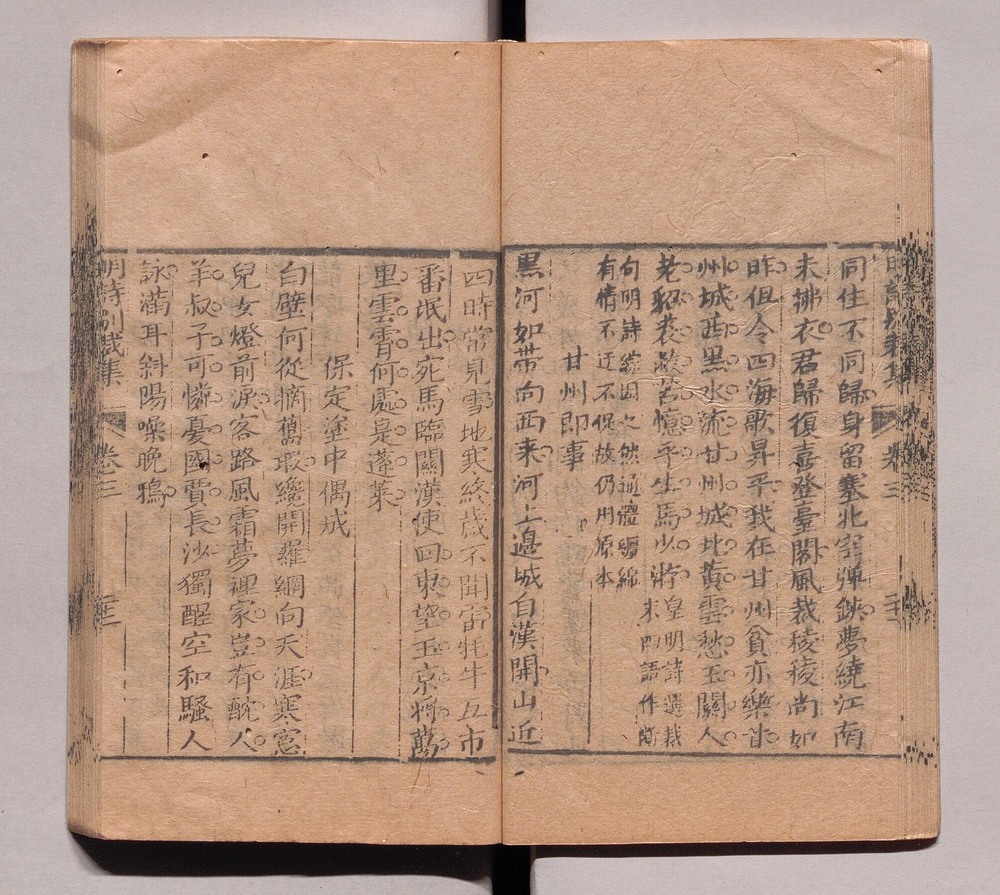 同住不同歸身留塞北空彈鋏夢繞江南
未拂衣君歸復喜登臺閣風裁稜稜尚如
昨但令四海歌昇平我在甘州貧亦樂甘
州城西黑水流甘州城北黄雲愁玉關人
老貂裘敝苦憶平生馬少游
皇明詩選裁
末四語作斷
句明詩綜因之然通體纏綿
有情不迂不促故仍用原本
甘州即事
黑河如帶向西来河上邉城自漢開山近
四時常見雪地寒終歲不聞雷牦牛互市
番氓出宛馬臨關漢使回東望玉京將萬
里雲霄何處是蓬萊
保定塗中偶成
白壁何從摘舊瑕纔開羅網向天涯寒窻
兒女燈前淚客路風霜夢裡家豈有酖人
羊叔子可憐憂國賈長沙獨醒空和騷人
詠滿耳斜陽噪晚鴉
明詩别裁集
卷三